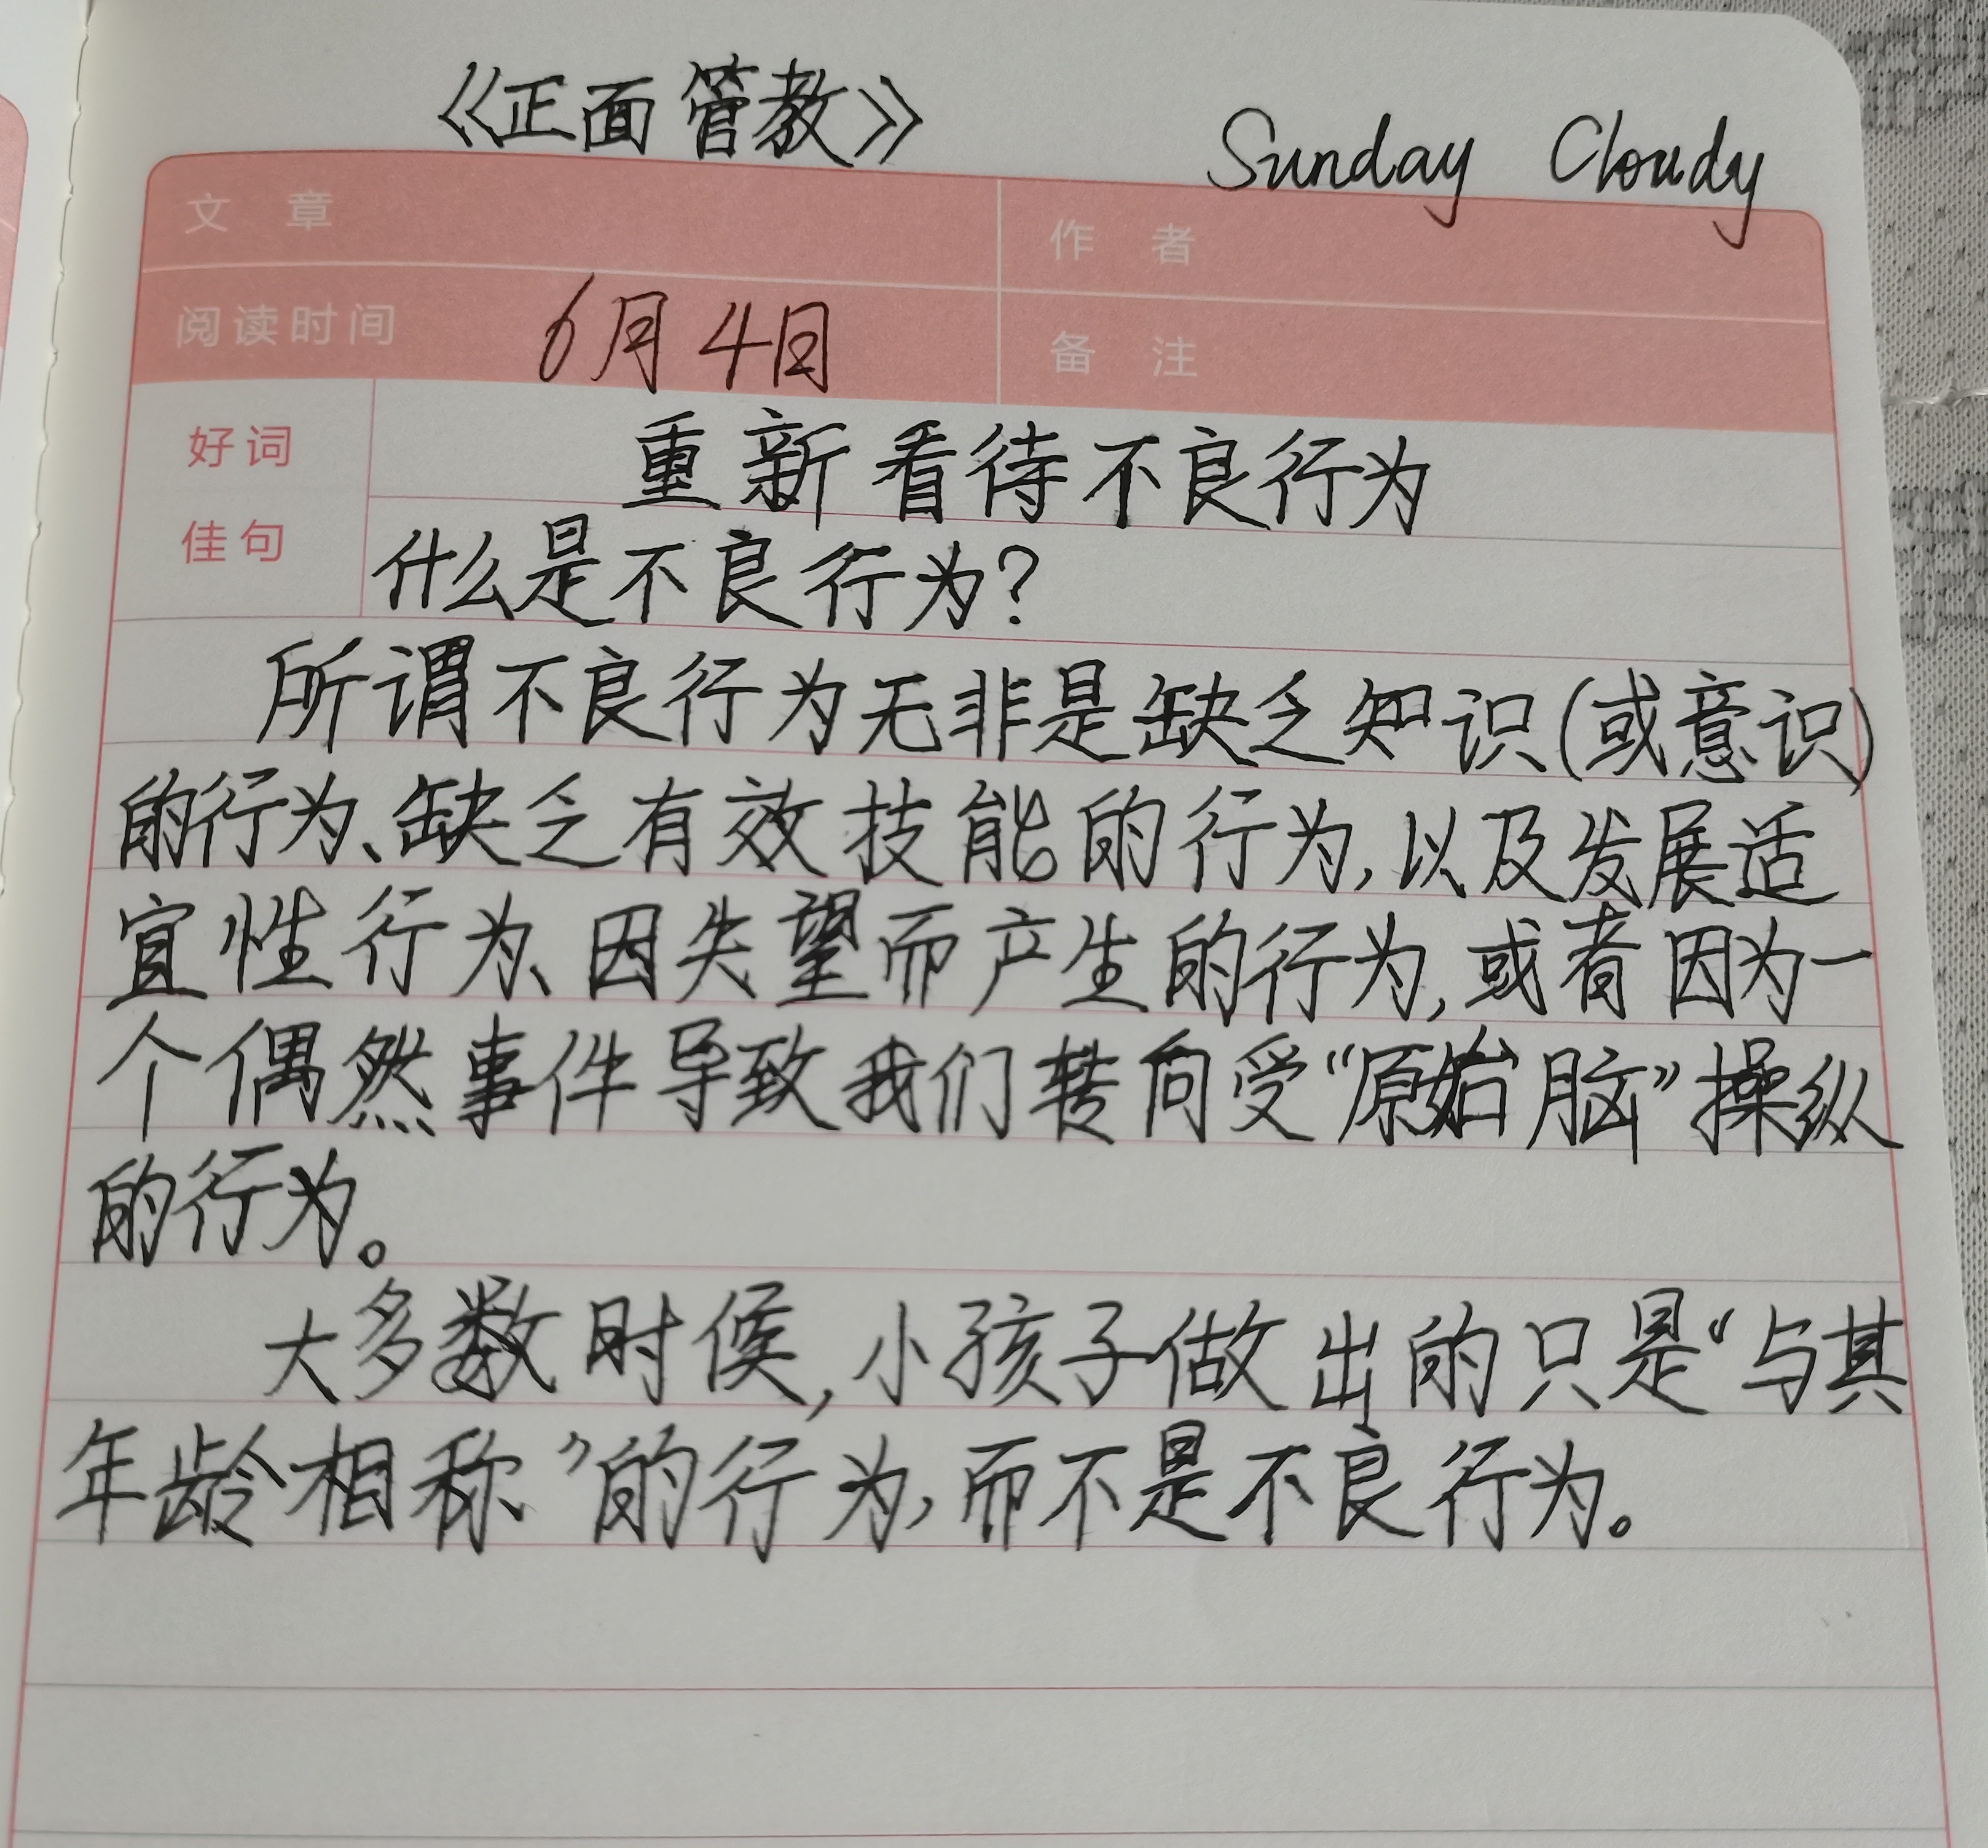 《正面管教》
Sunday Cloudy
文 章
作 者
阅读时间 6月4日
备 注
好词
佳句
重新看待不良行为
什么是不良行为?
所谓不良行为无非是缺乏知识(或意识)
的行为、缺乏有效技能的行为,以及发展适
宜性行为、因失望而产生的行为,或者因为一
个偶然事件导致我们转向受“原始脑”操纵
的行为。
大多数时候,小孩子做出的只是“与其
年龄相称”的行为,而不是不良行为。